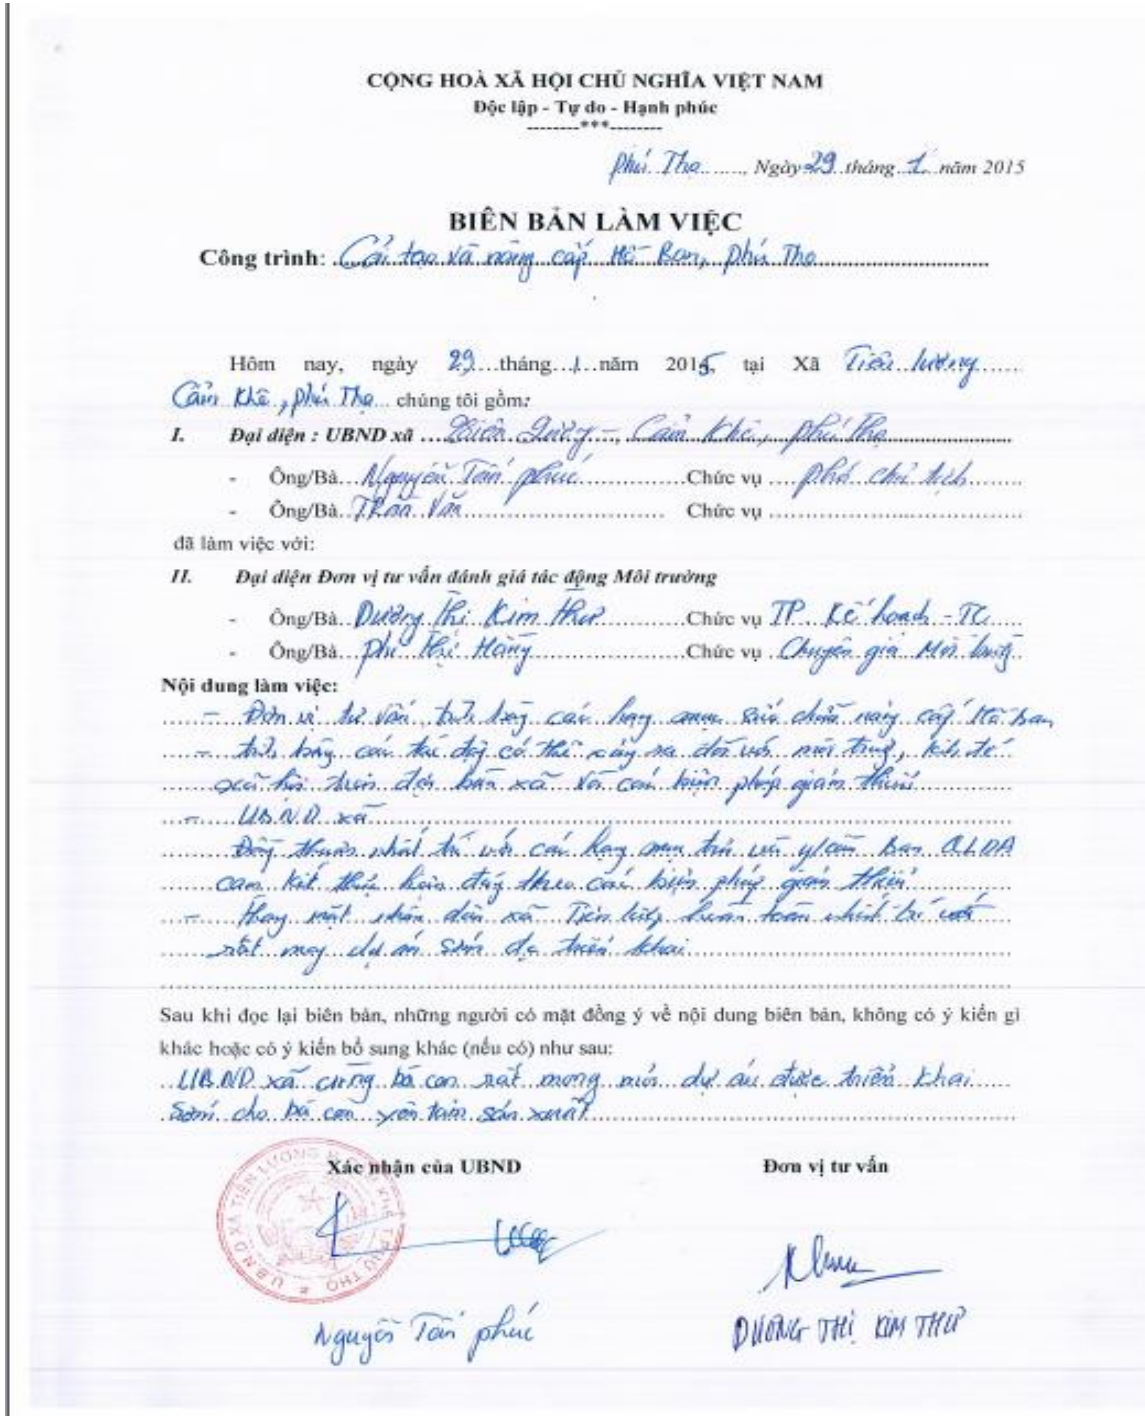 CỘNG HOÀ XÃ HỘI CHỦ NGHĨA VIỆT NAM
Độc lập - Tự do - Hạnh phúc
--------***--------
Phú Thọ......, Ngày 29 tháng 1 năm 2015
BIÊN BẢN LÀM VIỆC
Công trình: Cải tạo và nâng cấp Hồ Ban, Phú Thọ
Hôm nay, ngày 29 tháng 1 năm 2015, tại Xã Tiên Lương
Cẩm Khê, Phú Thọ chúng tôi gồm:
I. Đại diện : UBND xã Tiên Lương, Cẩm Khê, Phú Thọ
- Ông/Bà Nguyễn Tấn Phúc Chức vụ Phó chủ tịch
- Ông/Bà Trần Văn Chức vụ
đã làm việc với:
II. Đại diện Đơn vị tư vấn đánh giá tác động Môi trường
- Ông/Bà Dương Thị Kim Thư Chức vụ TP Kế hoạch - TC
- Ông/Bà Phí Thị Hằng Chức vụ Chuyên gia Môi trường
Nội dung làm việc:
- Đơn vị tư vấn trình bày các hạng mục sửa chữa nâng cấp Hồ Ban
- trình bày các tác động có thể xảy ra đối với môi trường, kinh tế
xã hội trên địa bàn xã và các biện pháp giảm thiểu
- UBND xã
Đồng thuận nhất trí với các hạng mục trên và y/cầu Ban QLDA
cam kết thực hiện đúng theo các biện pháp giảm thiểu
- Thay mặt nhân dân xã Tiên Lương hoàn toàn nhất trí với
rất mong dự án sớm đc triển khai
Sau khi đọc lại biên bản, những người có mặt đồng ý về nội dung biên bản, không có ý kiến gì
khác hoặc có ý kiến bổ sung khác (nếu có) như sau:
UBND xã cùng bà con rất mong mỏi dự án được triển khai
sớm cho bà con yên tâm sản xuất
Xác nhận của UBND Đơn vị tư vấn
U.B.N.D XÃ TIÊN LƯƠNG H. CẨM KHÊ T. PHÚ THỌ
Nguyễn Tấn Phúc DƯƠNG THỊ KIM THƯ